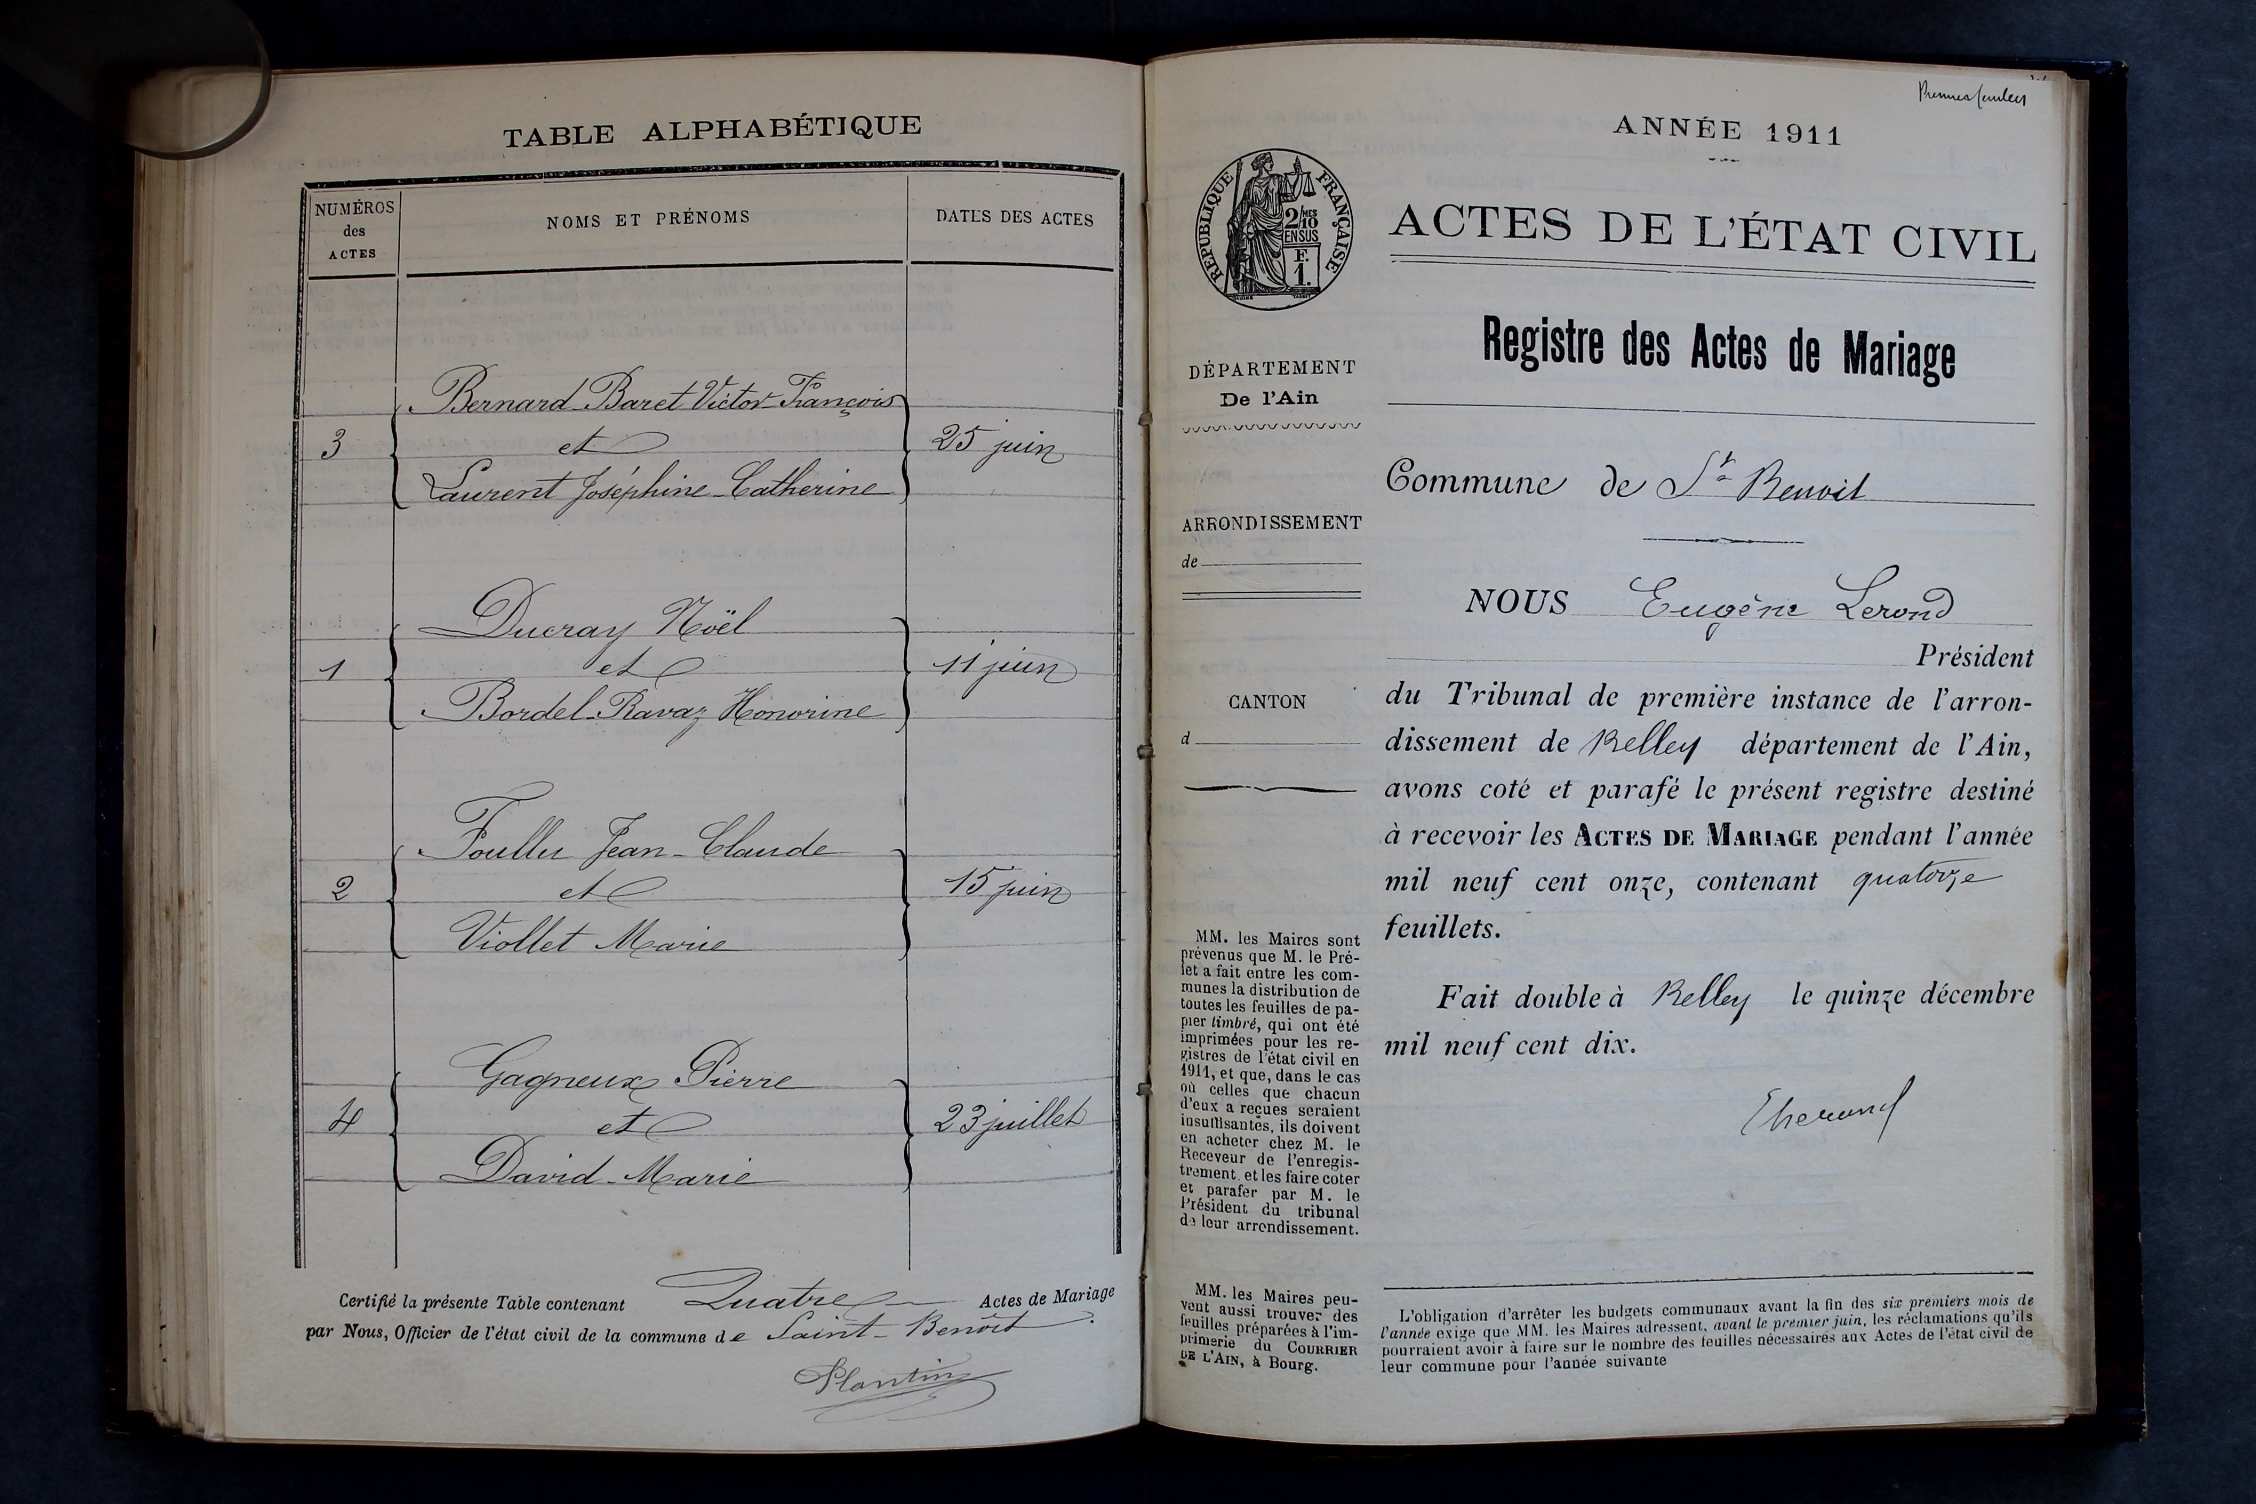 TABLE ALPHABÉTIQUE
NUMÉROS
des
ACTES
NOMS ET PRÉNOMS
DATES DES ACTES
Bernard-Baret Victor-François
3 et 25 juin
Laurent Joséphine-Catherine
Ducray Noël
1 et 11 juin
Bordel-Ravaz Honorine
Jean-Claude
2 et 15 juin
Viollet Marie
Gagneux Pierre
4 et 23 juillet
David-Marie
Certifié la présente Table contenant Quatre Actes de Mariage
par Nous, Officier de l'état civil de la commune de Saint-Benoît.
Plantin
ANNÉE 1911
RÉPUBLIQUE FRANÇAISE
2/10MES
EN SUS
F.
1.
ACTES DE L'ÉTAT CIVIL
Registre des Actes de Mariage
DÉPARTEMENT
De l'Ain
ARRONDISSEMENT
de
CANTON
d
MM. les Maires sont
prévenus que M. le Pré-
fet a fait entre les com-
munes la distribution de
toutes les feuilles de pa-
pier timbré, qui ont été
imprimées pour les re-
gistres de l'état civil en
1911, et que, dans le cas
où celles que chacun
d'eux a reçues seraient
insuffisantes, ils doivent
en acheter chez M. le
Receveur de l'enregis-
trement et les faire coter
et parafer par M. le
Président du tribunal
de leur arrondissement.
MM. les Maires peu-
vent aussi trouver des
feuilles préparées à l'im-
primerie du COURRIER
DE L'AIN, à Bourg.
Commune de St Benoit
NOUS Eugène Lerond
Président
du Tribunal de première instance de l'arron-
dissement de Belley département de l'Ain,
avons coté et parafé le présent registre destiné
à recevoir les ACTES DE MARIAGE pendant l'année
mil neuf cent onze, contenant quatorze
feuillets.
Fait double à Belley le quinze décembre
mil neuf cent dix.
L'obligation d'arrêter les budgets communaux avant la fin des six premiers mois de
l'année exige que MM. les Maires adressent, avant le premier juin, les réclamations qu'ils
pourraient avoir à faire sur le nombre des feuilles nécessaires aux Actes de l'état civil de
leur commune pour l'année suivante